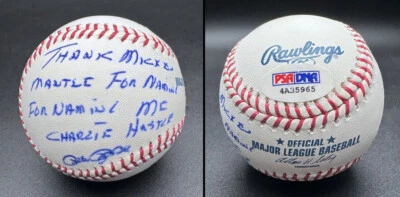 THANK MICKEY
MANTLE FOR NAMING
FOR NAMING ME
CHARLIE HUSTLE
Pete Rose
Rawlings
PSA/DNA
4A35965
OFFICIAL
MAJOR LEAGUE BASEBALL
Allan H. Selig